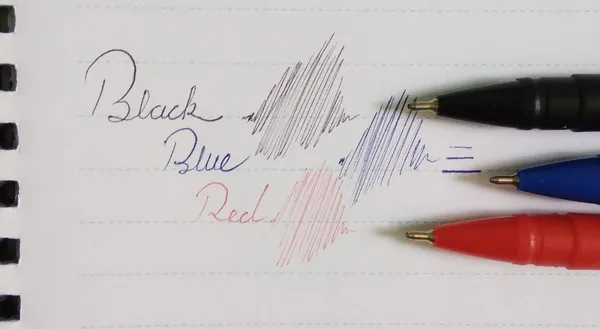 Black
Blue
Red